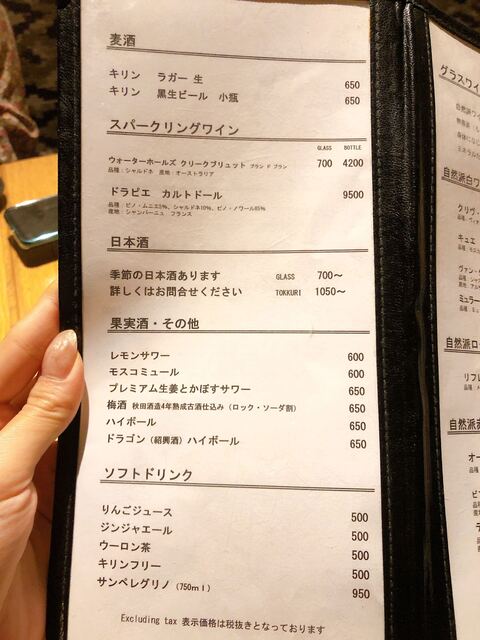 麦酒
キリン ラガー 生 650
キリン 黒生ビール 小瓶 650
スパークリングワイン
GLASS BOTTLE
ウォーターホールズ クリークブリュット ブラン ド ブラン 700 4200
品種:シャルドネ 産地:オーストラリア
ドラピエ カルトドール 9500
品種:ピノ・ムニエ5%、シャルドネ10%、ピノ・ノワール85%
産地:シャンパーニュ フランス
日本酒
季節の日本酒あります GLASS 700〜
詳しくはお問合せください TOKKURI 1050〜
果実酒・その他
レモンサワー 600
モスコミュール 600
プレミアム生姜とかぼすサワー 650
梅酒 秋田酒造4年熟成古酒仕込み(ロック・ソーダ割) 650
ハイボール 650
ドラゴン(紹興酒)ハイボール 650
ソフトドリンク
りんごジュース 500
ジンジャエール 500
ウーロン茶 500
キリンフリー 500
サンペレグリノ(750ml) 950
Excluding tax 表示価格は税抜きとなっております
グラスワイ
自然派ワイ
自然派白ワ
クリヴ・
キュエ
ヴァン・
ミュラー
自然派ロ
リフレ
自然派赤
オー
ピ